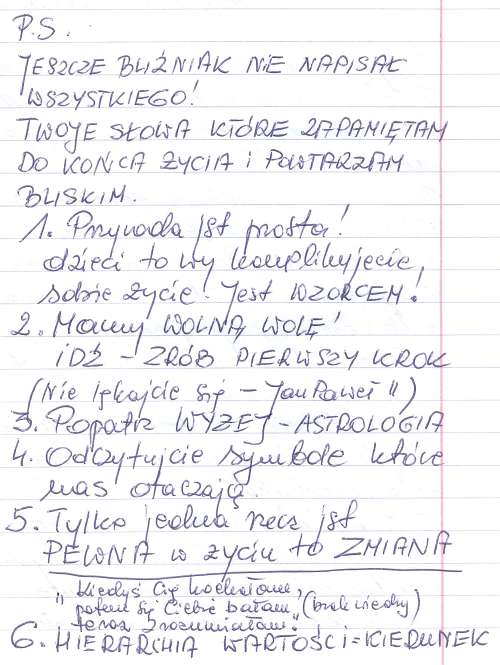 P.S.
JESZCZE BLIŹNIAK NIE NAPISAŁ
WSZYSTKIEGO!
TWOJE SŁOWA KTÓRE ZAPAMIĘTAM
DO KOŃCA ŻYCIA i POWTARZAM
BLISKIM.
1. Przyroda jst prosta!
dzieci to wy komplikujecie,
sobie życie! Jest WZORCEM!
2. Mamy WOLNĄ WOLĘ!
IDŹ - ZRÓB PIERWSZY KROK
(Nie lękajcie się - Jan Paweł II)
3. Popatrz WYŻEJ - ASTROLOGIA
4. Odczytujcie symbole które
nas otaczają.
5. Tylko jedna rzecz jst
PEWNA w życiu to ZMIANA
"Kiedyś Cię kochałam,
potem się Ciebie bałam, (brak wiedzy)
teraz zrozumiałam."
6. HIERARCHIA WARTOŚCI = KIERUNEK